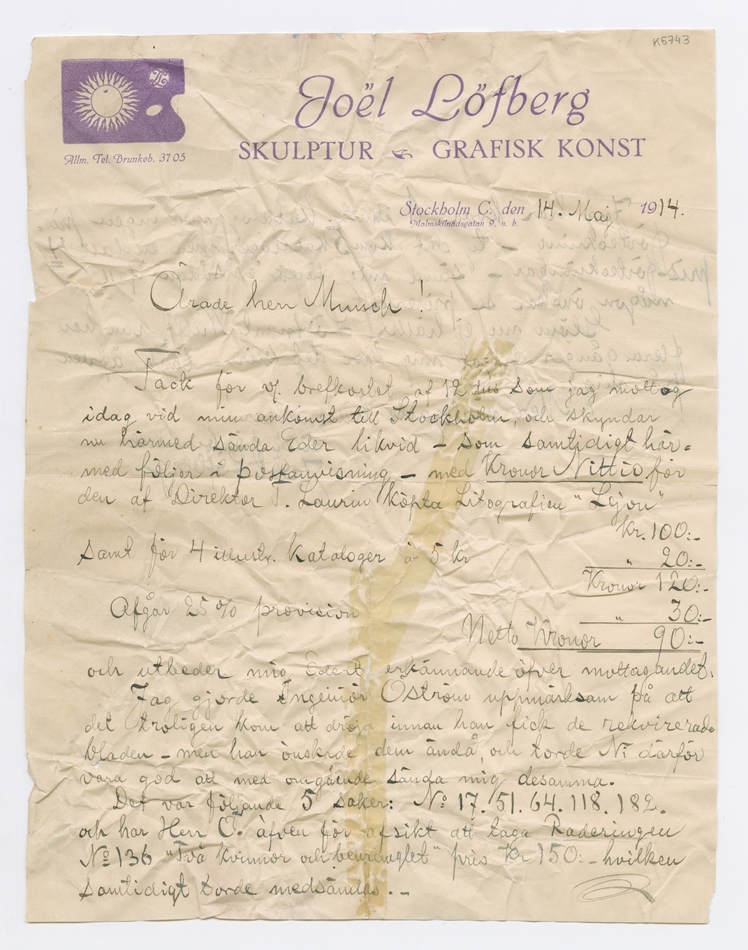 K5743
Joël Löfberg
SKULPTUR GRAFISK KONST
Allm. Tel. Brunkeb. 37 05
Stockholm C. den 14. Maj 1914.
Malmskilnadsgatan 9, n. b.
Ärade herr Munch!
Tack för brefkortet af 12 dus som jag mottog
idag vid min ankomst till Stockholm, och skyndar
nu härmed sända Eder likvid – som samtidigt här=
med följer i postanvisning – med Kronor Nittio för
den af Direktör T. Laurin köpta Litografien "Lejon"
Kr. 100:-
samt för 4 illustr. kataloger à 5 kr " 20:-
Kronor 120:-
Afgår 25% provision " 30:-
Netto Kronor 90:-
och utbeder mig Edert erkännande öfver mottagandet.
Jag gjorde Ingeniör Öström uppmärksam på att
det troligen kom att dröja innan han fick de rekvirerade
bladen – men har önskade dem ändå, och torde Ni därför
vara god att med omgående sända mig desamma.
Det var följande 5 saker: No 17. 51. 64. 118. 182.
och har Herr Ö. äfven för afsikt att taga Raderingen
No 136 "Två kvinnor och benranglet" pris Kr 150:- hvilken
samtidigt torde medsändas.–